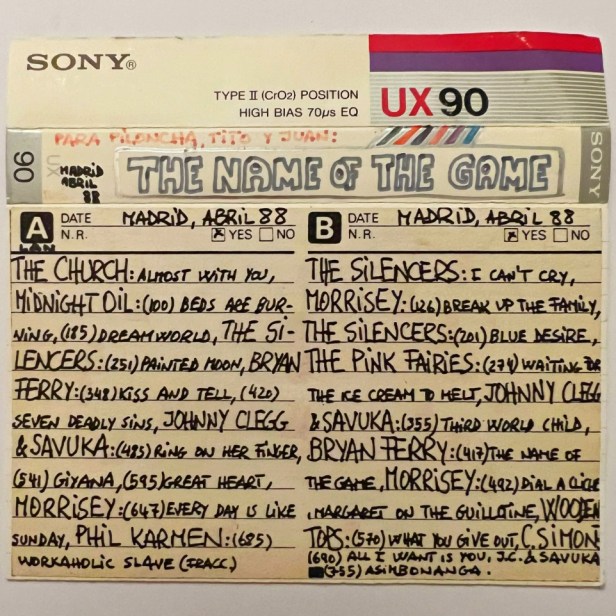 SONY®
TYPE II (CrO2) POSITION
HIGH BIAS 70µs EQ
UX 90
PARA PILONCHA, TITO Y JUAN:
UX 90
MADRID
ABRIL
88
THE NAME OF THE GAME
SONY
A DATE MADRID, ABRIL 88
N.R. YES NO
THE CHURCH: ALMOST WITH YOU,
MIDNIGHT OIL: (100) BEDS ARE BUR-
NING, (185) DREAMWORLD, THE SI-
LENCERS: (251) PAINTED MOON, BRYAN
FERRY: (348) KISS AND TELL, (420)
SEVEN DEADLY SINS, JOHNNY CLEGG
& SAVUKA: (485) RING ON HER FINGER,
(541) GIYANA, (595) GREAT HEART,
MORRISEY: (647) EVERY DAY IS LIKE
SUNDAY, PHIL KARMEN: (685)
WORKAHOLIC SLAVE (FRACC,)
B DATE MADRID, ABRIL 88
N.R. YES NO
THE SILENCERS: I CAN'T CRY,
MORRISEY: (126) BREAK UP THE FAMILY,
THE SILENCERS: (201) BLUE DESIRE,
THE PINK FAIRIES: (274) WAITING FOR
THE ICE CREAM TO MELT, JOHNNY CLEGG
& SAVUKA: (355) THIRD WORLD CHILD,
BRYAN FERRY: (417) THE NAME OF
THE GAME, MORRISEY: (492) DIAL A CLICHE
, MARGARET ON THE GUILLOTINE, WOODEN
TOPS: (570) WHAT YOU GIVE OUT, C. SIMON:
(690) ALL I WANT IS YOU, J.C. & SAVUKA
(755) ASIMBONANGA.